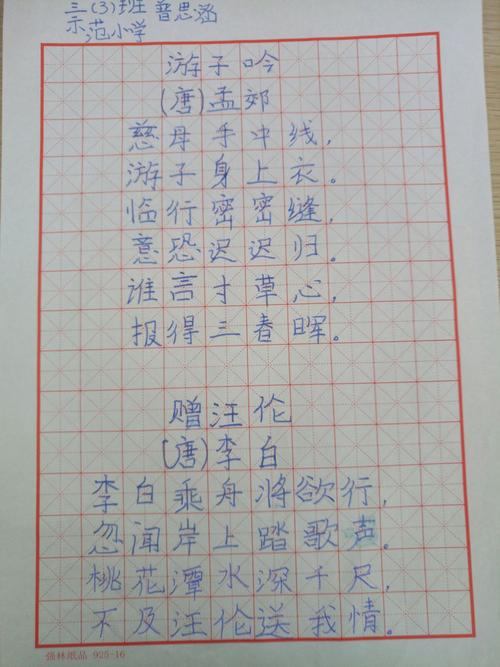 三(3)班 普思涵
示范小学
游子吟
(唐)孟郊
慈母手中线,
游子身上衣。
临行密密缝,
意恐迟迟归。
谁言寸草心,
报得三春晖。
赠汪伦
(唐)李白
李白乘舟将欲行,
忽闻岸上踏歌声。
桃花潭水深千尺,
不及汪伦送我情。
强林纸品 925-16